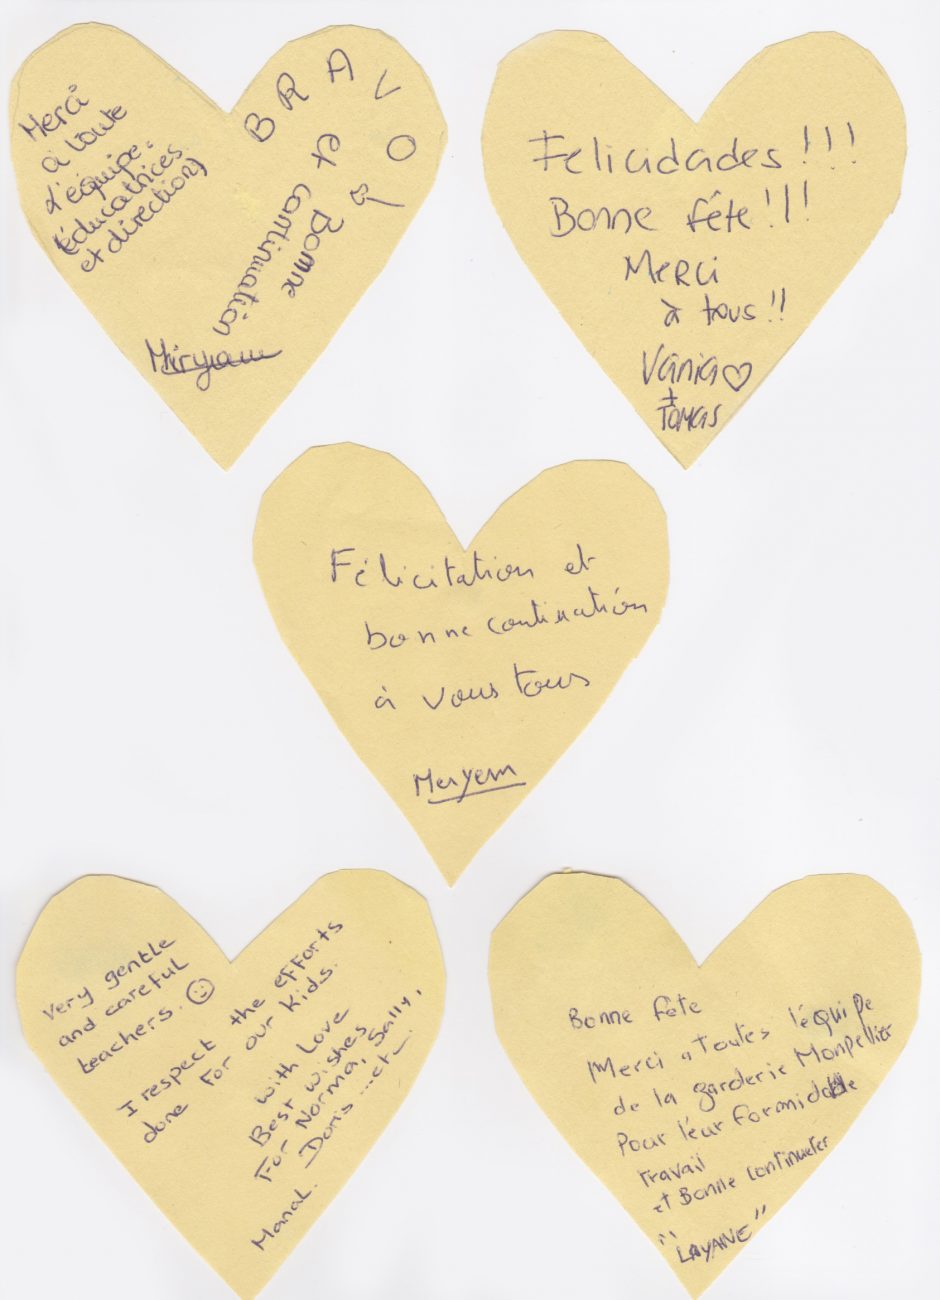 Merci
à toute
l'équipe:
(éducatrices
et direction)
BRAVO
et Bonne
continuation
Miryam
Felicidades!!!
Bonne fête!!!
Merci
à tous!!
Vania
+
Tomas
Félicitation et
bonne continuation
à vous tous
Meryem
Very gentle
and careful
teachers.
I respect the efforts
done for our kids.
With Love
Best wishes
For Norma, Sally,
Doris ...etc
Manal.
Bonne fête
Merci a Toutes l'équipe
de la garderie Monpellier
Pour léur formidable
travail
et Bonne continueter
"LAYANE"